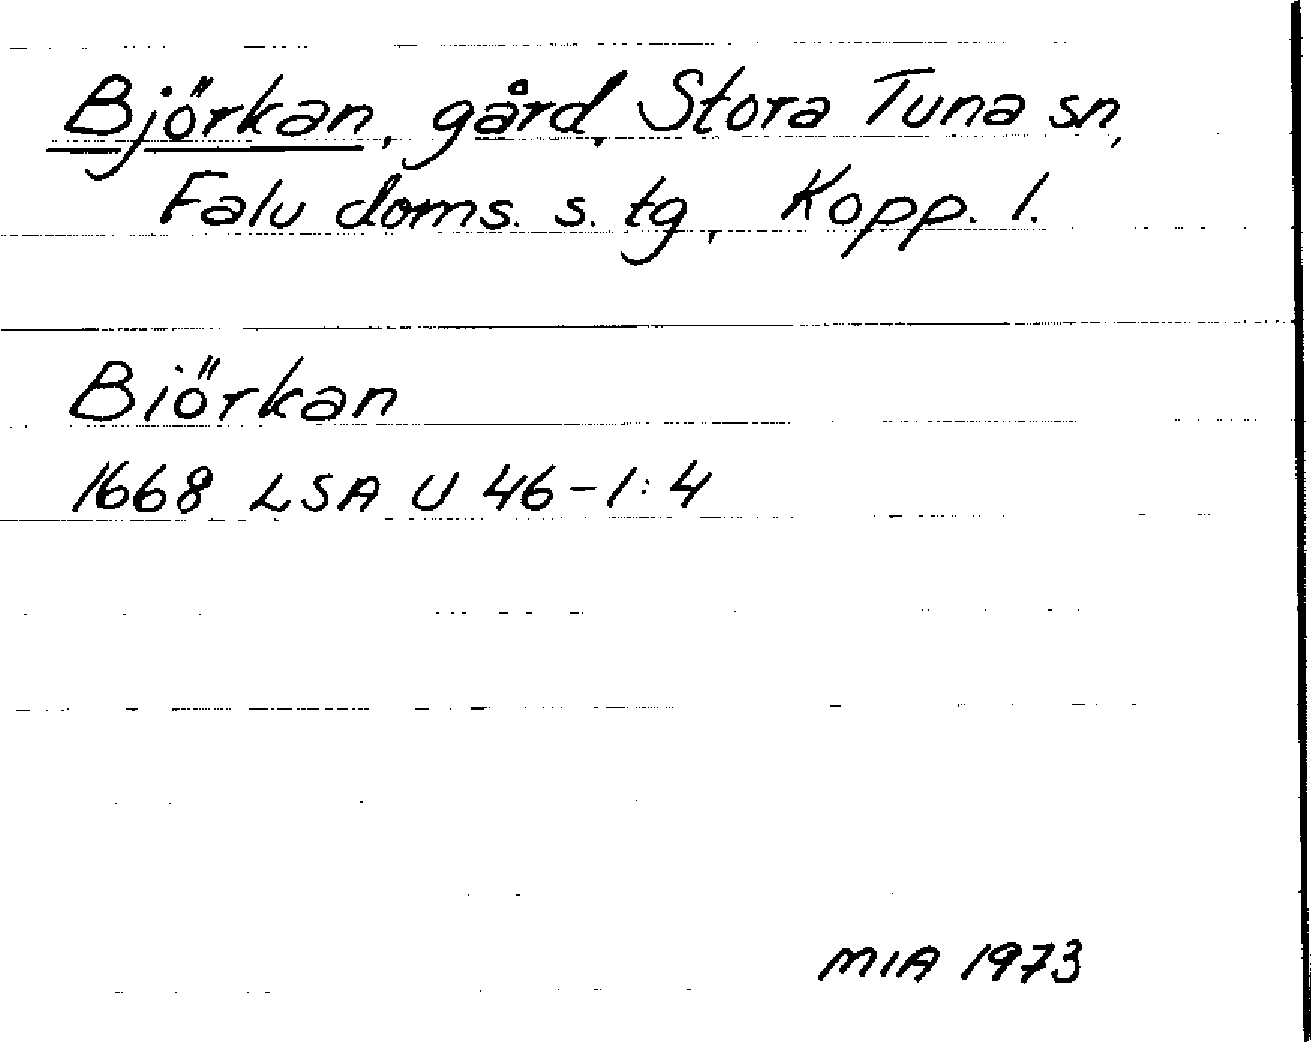 Björkan, gård, Stora Tuna sn,
Falu doms. s. tg, Kopp. l.
Biörkan
1668 LSA U 46-1:4
MIA 1973